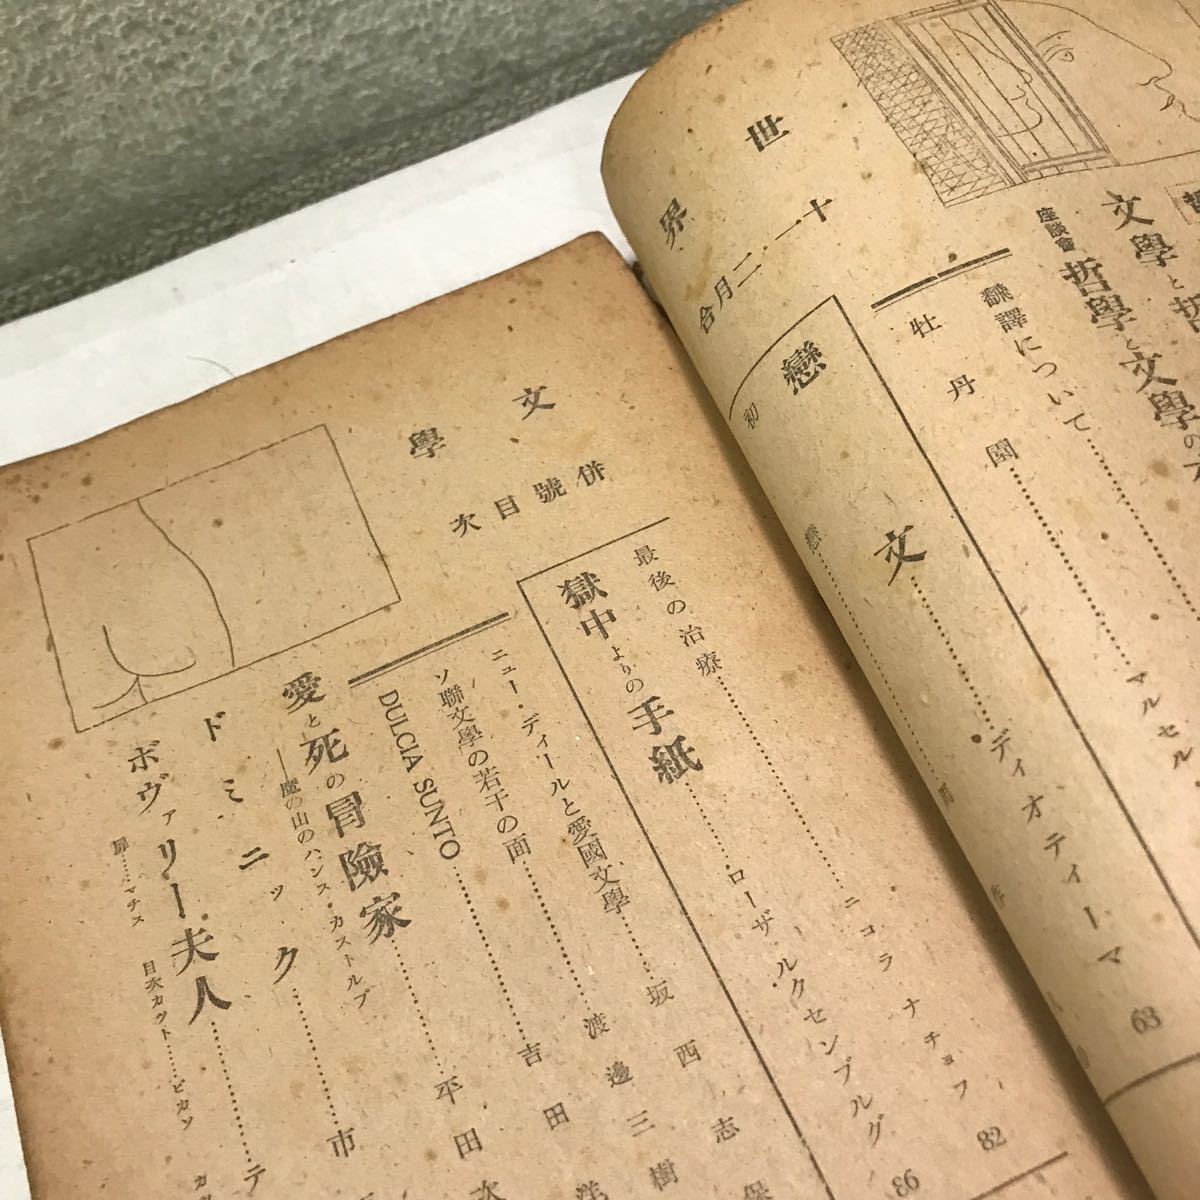 世界
文學
十一・二月合
併號目次
文學と哲
座談會 哲學と文學の
飜譯について……マルセル
牡丹園
戀文……ディオティーマ 63
初戀……作
最後の治療……ニコラ ナチョフ 82
獄中よりの手紙……ローザ・ルクセンブルグ 86
ニュー・ディールと愛國文學……坂西志保
ソ聯文學の若干の面……渡邊三樹
DULCIA SUNTO……吉田
愛と死の冒險家……平田次
――魔の山のハンス・カストルプ
ドミニック……市
ボヴァリー夫人……テ
扉……マチス 目次カット……ピカソ カ